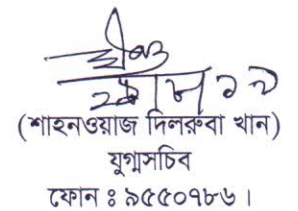 (শাহনওয়াজ দিলরুবা খান)
যুগ্মসচিব
ফোন ঃ ৯৫৫০৭৮৬।